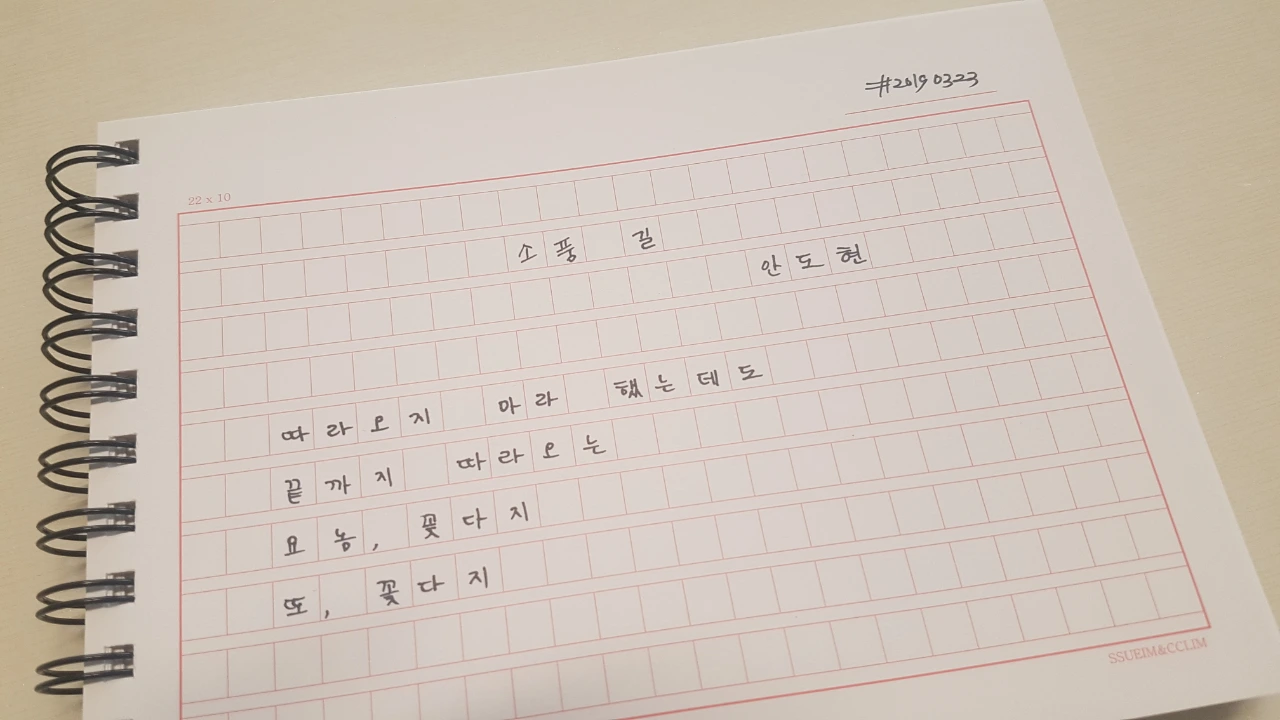 #20190323
22 x 10
소풍 길
안도현
따라오지 마라 했는데도
끝까지 따라오는
요놈, 꽃다지
또, 꽃다지
SSUEIM&CCLIM